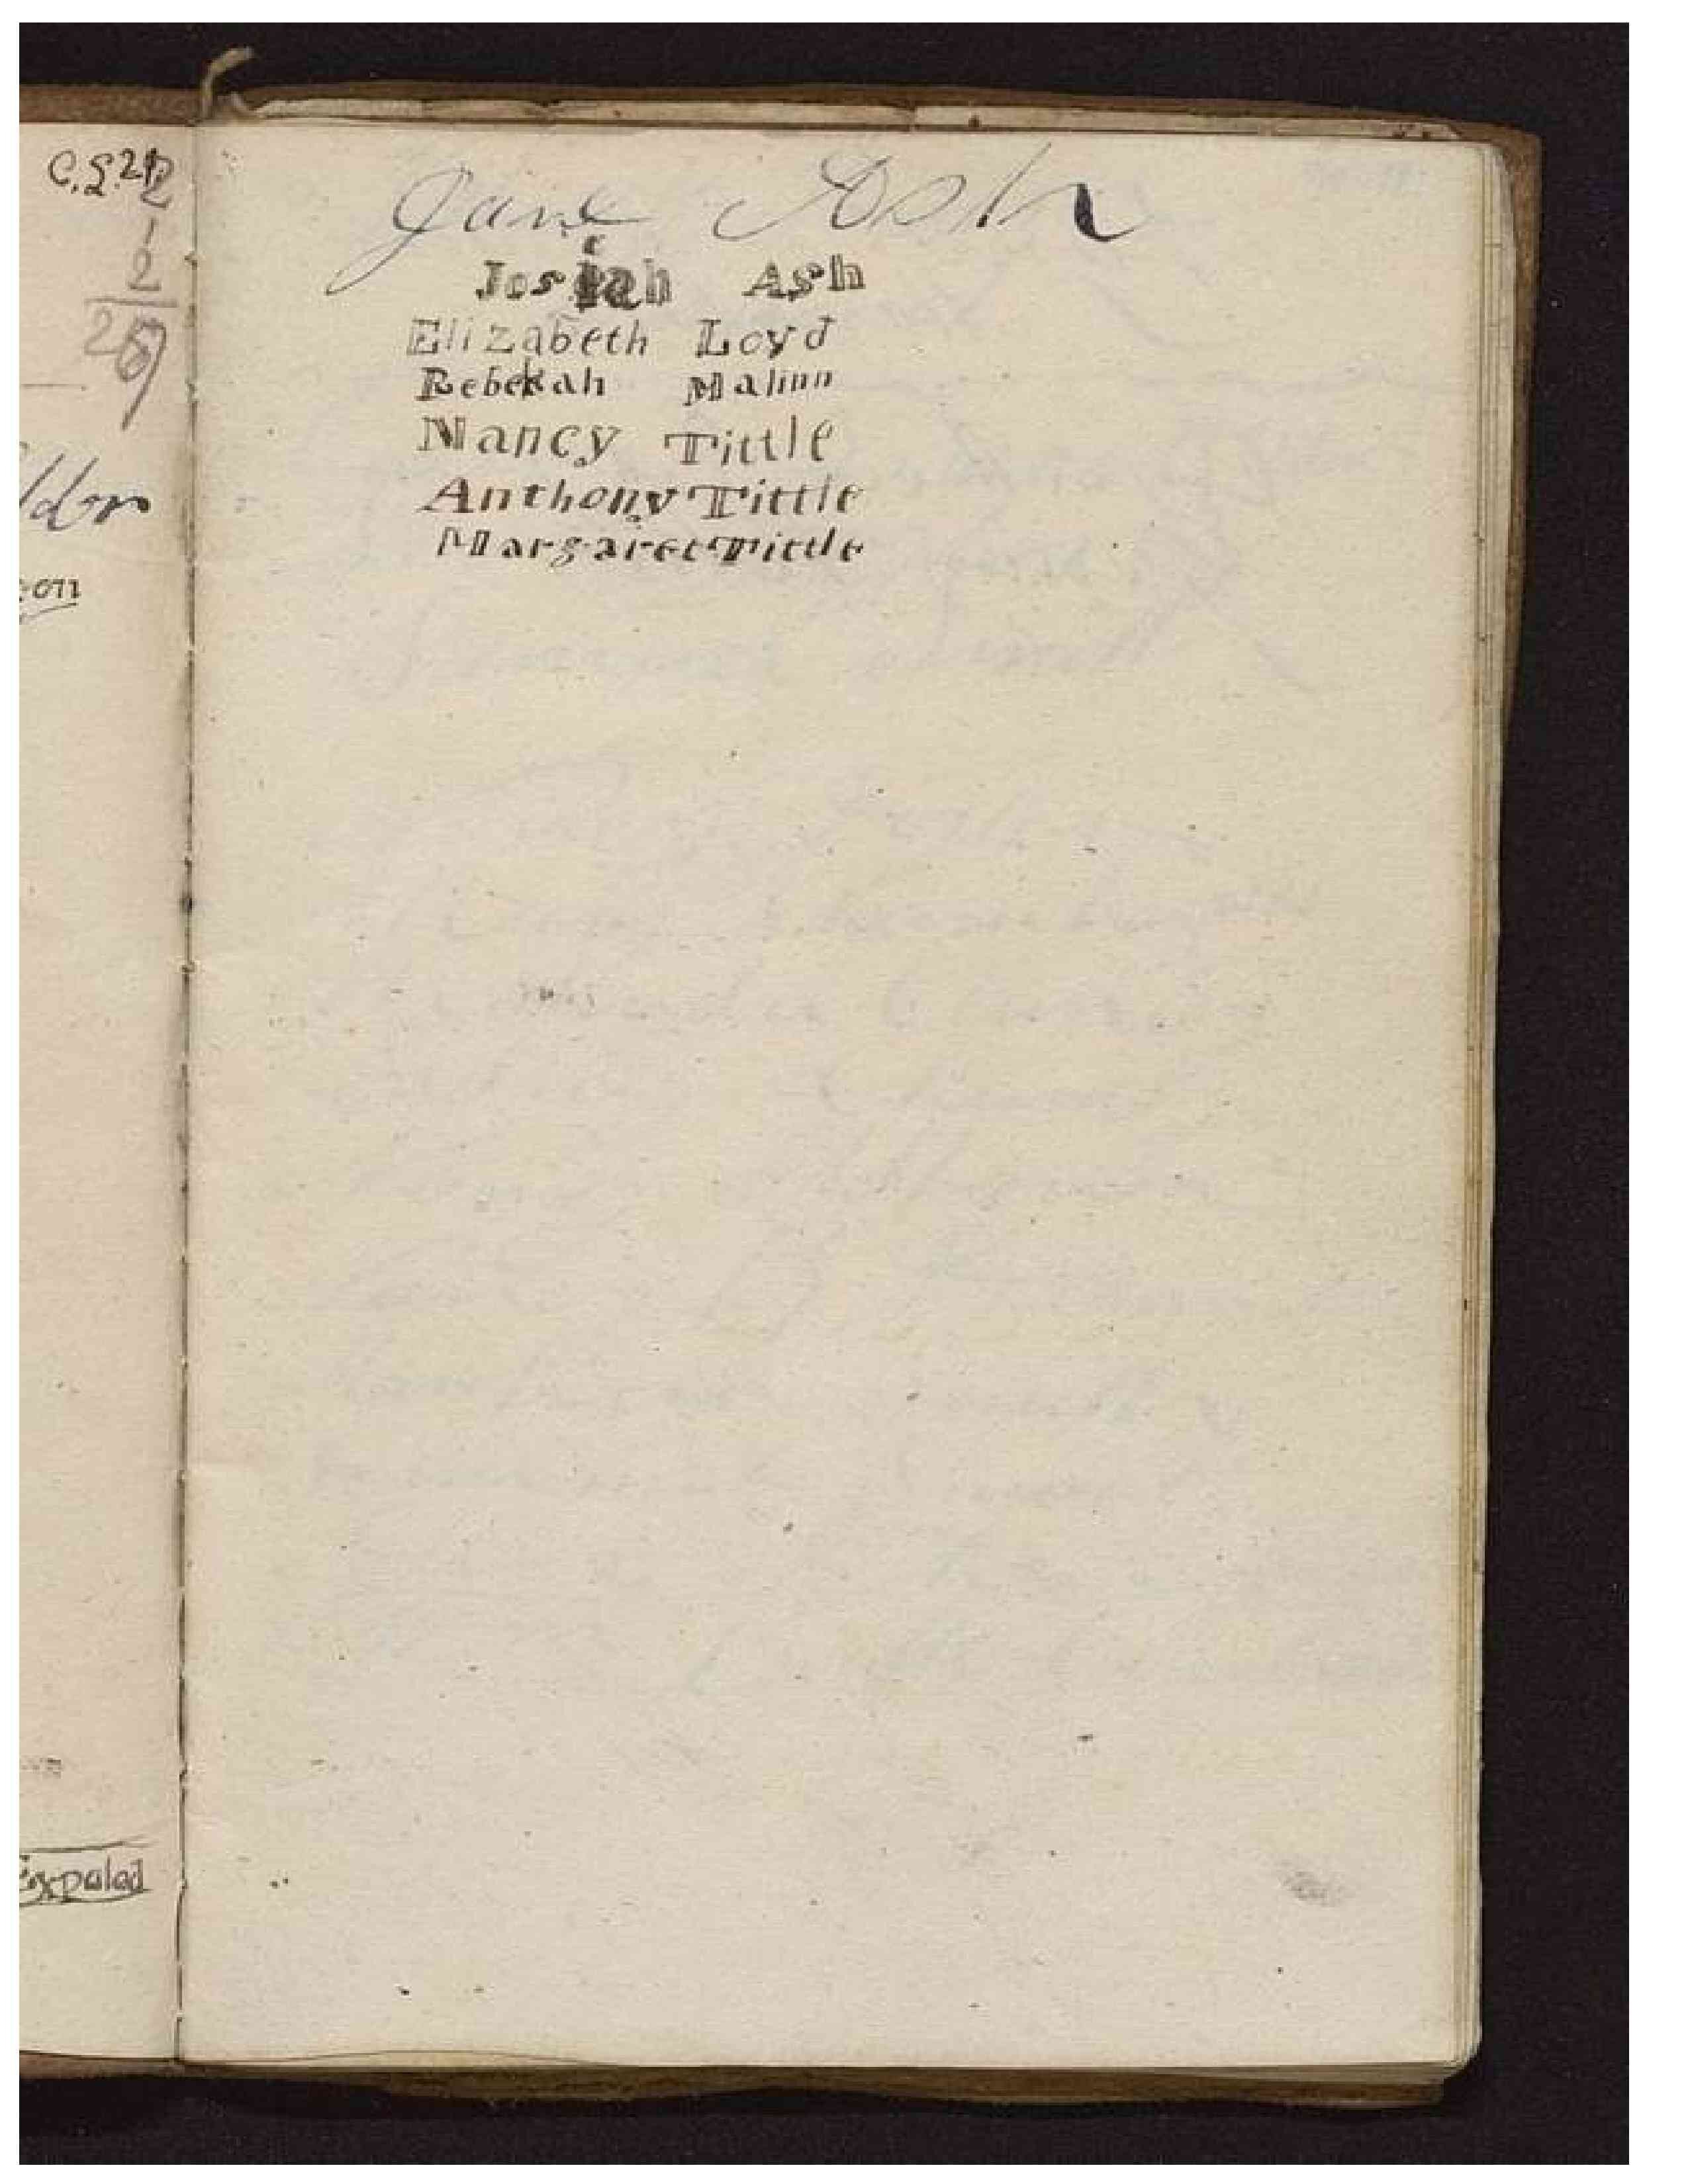 C.S. 21
2
1
2
26
on
Expeled
Jane Ash
Josiah Ash
Elizabeth Loyd
Rebekah Malinn
Nancy Tittle
Anthony Tittle
Margaret Tittle